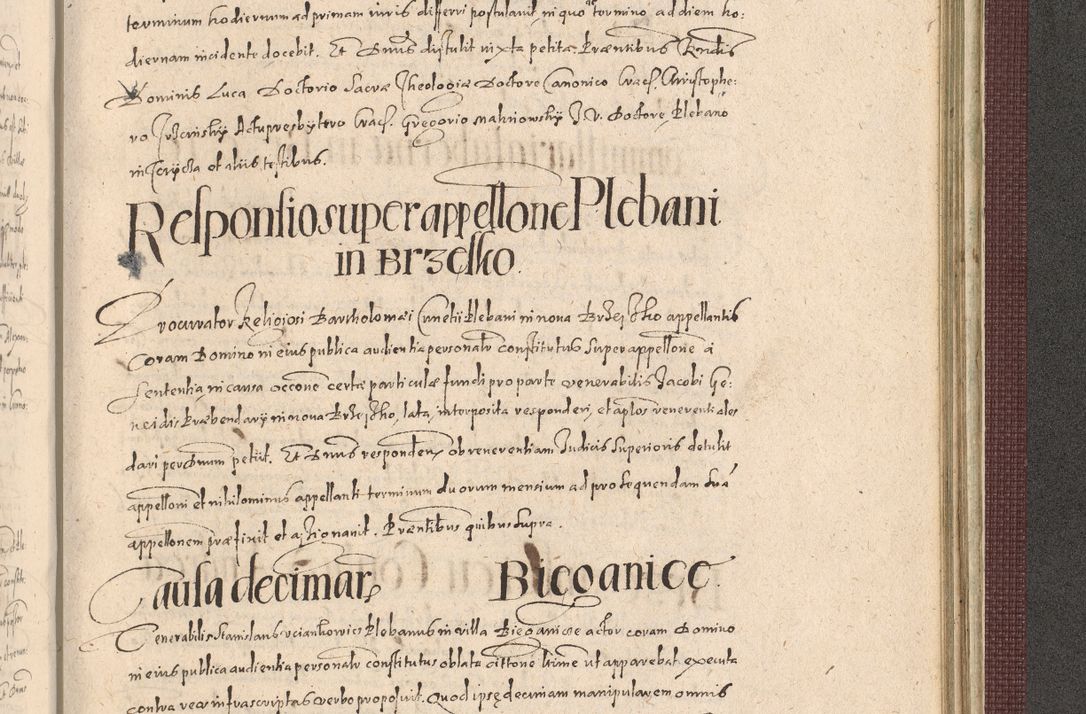 terminum hodiernum ad primam iuris differri postulavit, in quo termino ad diem ho:
diernam incidente docebit. Et Dnus distulit iuxta petita. Præntibus Rndis
Dominis Luca Doctorio Sacræ Theologiæ Doctore Canonico Crac: Christophe:
ro Actupresbytero Crac: Gregorio J. V. Doctore, Plebano
in et aliis testibus.
Responsio super appellone Plebani
in Brzesko.
Procurator Religiosi Bartholomæi Plebani in nova Brzesko appellantis
coram Domino in eius publica audientia personalr constitutus super appellone a
sententia in causa occone certæ particulæ fundi pro parte venerabilis Jacobi Ge:
neidis Præbendarii in nova Brzesko, lata, interposita responderi, et aplos reverentiales
dari per Dnum petiit. Et Dnus respondens ob reverentiam Iudicis Superioris detulit
appelloni et nihilominus appellanti terminum duorum mensium ad prosequendam suã
appellonem præfixit et assignavit. Præntibus quibus supra.
Causa decimar Bieganice
Venerabilis Stanislaus Plebanus in villa Bieganice actor coram Domino
in eius publica audientia personalr constitutus oblata cittone hinc ut apparebat executa
contra reos infrascriptos verbo proposuit. Quod ipse decimam manipularem omnis